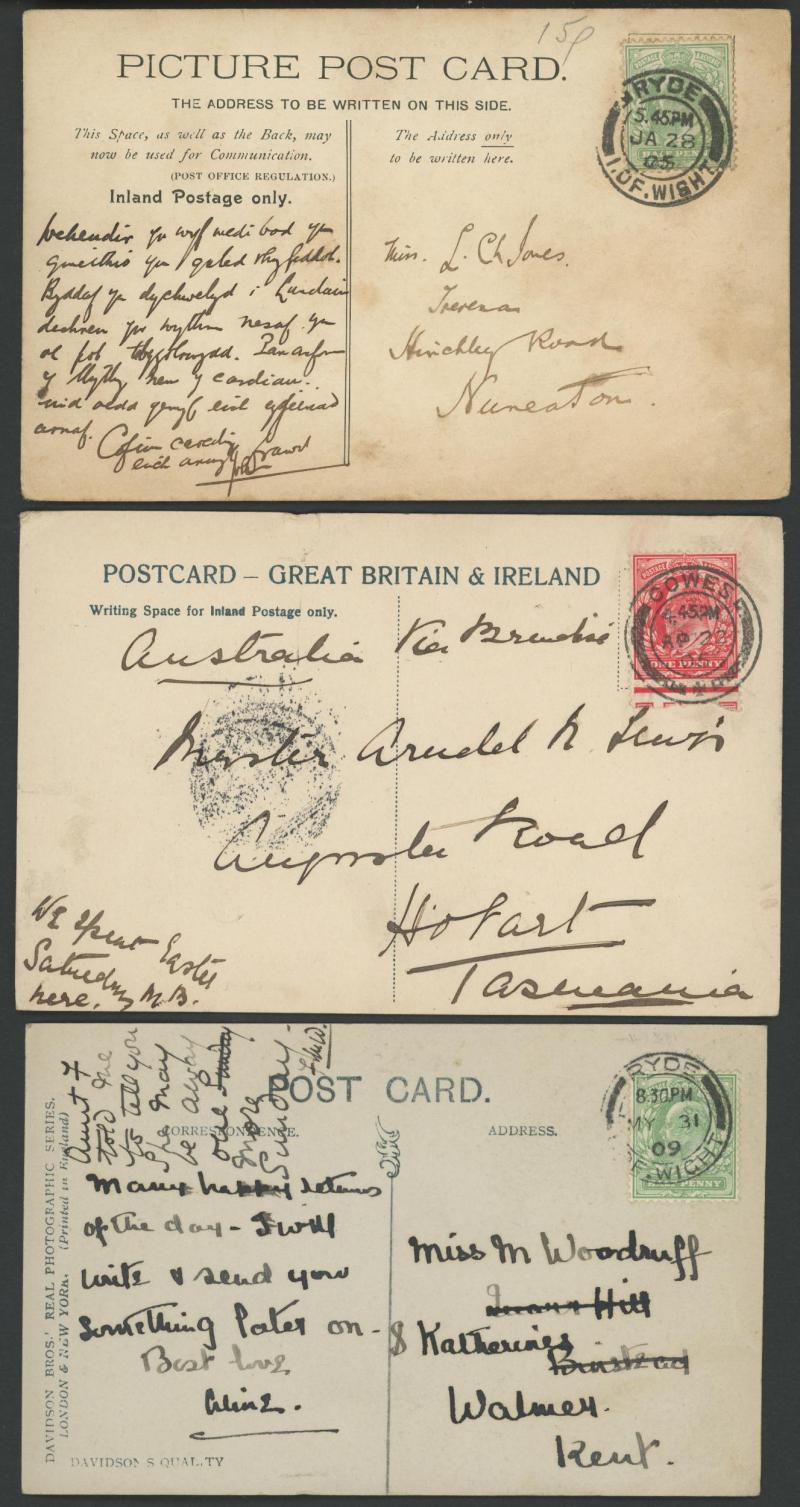 15p
PICTURE POST CARD.
THE ADDRESS TO BE WRITTEN ON THIS SIDE.
This Space, as well as the Back, may
now be used for Communication.
(POST OFFICE REGULATION.)
Inland Postage only.
The Address only
to be written here.
RYDE
5.45PM
JA 28
05
I.OF.WIGHT
yr wyf wedi bod yn
yn galed rhyfeddol.
Byddaf yn dychwelyd i
dechreu yr wythnos nesaf yn
ol pob
y
nid oedd genyf eich
arnaf.
Cofion
Miss. L. Ch Jones.
Hinckley Road
Nuneaton.
POSTCARD – GREAT BRITAIN & IRELAND
Writing Space for Inland Postage only.
POSTAGE
ONE PENNY
COWES
4.45PM
AP 22
Australia Via Brindisi
Master Arundel N Lewis
Augusta Road
Hobart
Tasmania
We spent Easter
Saturday
here. M.B.
POST CARD.
CORRESPONDENCE.
ADDRESS.
RYDE
8.30PM
MY 31
09
OF.WIGHT
HALF PENNY
DAVIDSON BROS.' REAL PHOTOGRAPHIC SERIES.
LONDON & NEW YORK. (Printed in England)
DAVIDSON'S QUALITY
Aunt F
told me
to tell you
she may
be away
one Sunday
more
Sunday-
Many happy returns
of the day - I will
write & send you
something later on -
Best love
Aline.
Miss M Woodruff
Hill
S Katherines
Binstead
Walmer.
Kent.